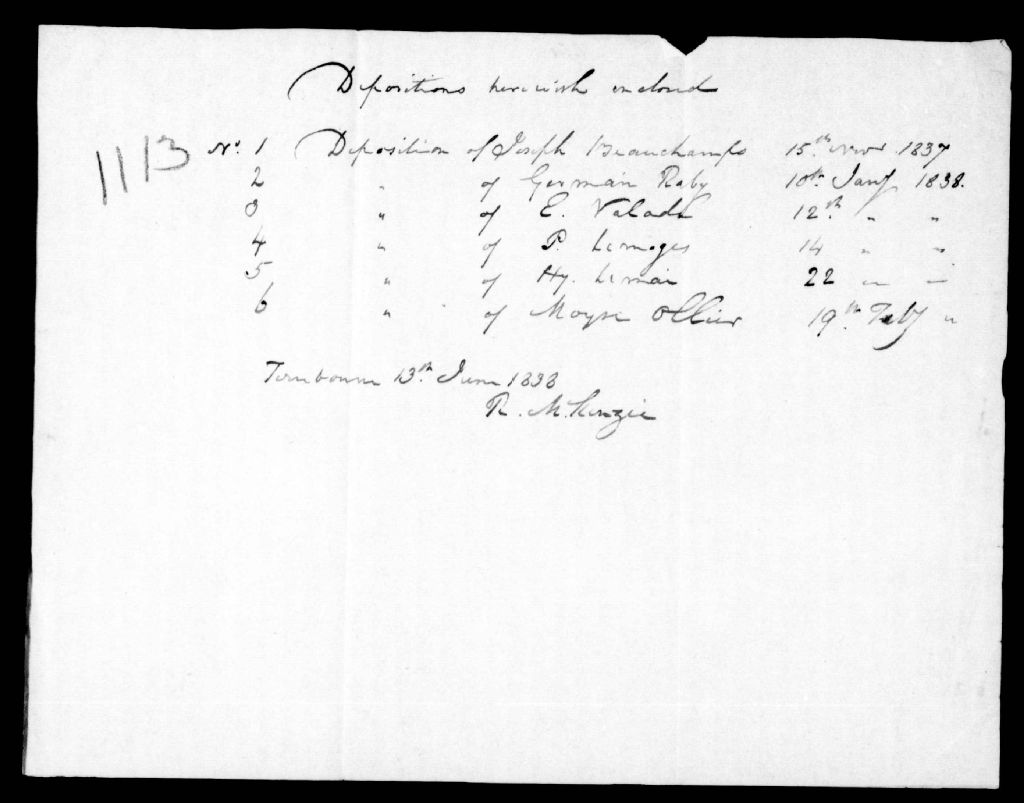 Depositions herewith enclosed
1113
No. 1 Deposition of Joseph Beauchamps 15th Novr 1837
2 " of Germain Raby 10th Jany 1838.
3 " of E. Valade 12th " "
4 " of P. Limoges 14 " "
5 " of Hy. Limai 22 " "
6 " of Moyse Ollier 19th Feby "
13th June 1838
R. McKenzie